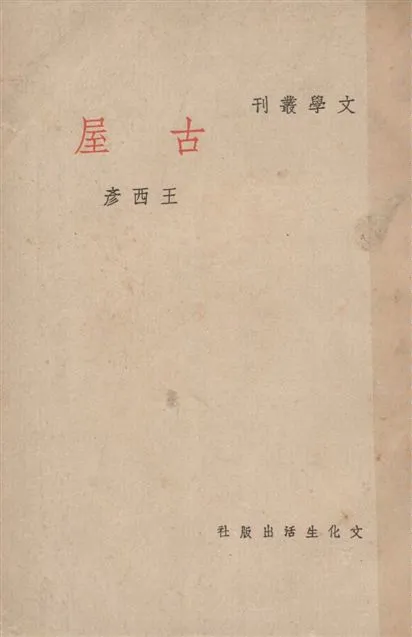 文學叢刊
古屋
王西彥
文化生活出版社